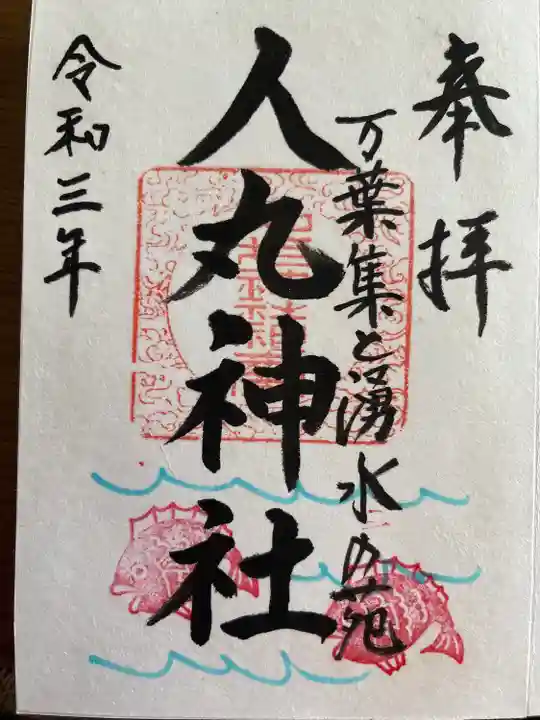 奉拝
万葉集と湧水の苑
人丸神社
令和三年